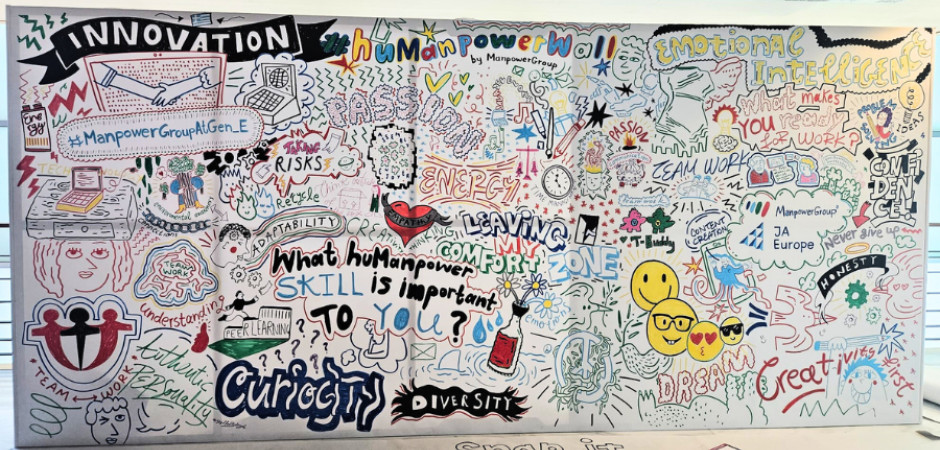 INNOVATION
#huManpowerWall
by ManpowerGroup
EMOTIONAL
INTELLIGEN
#ManpowerGroupAtGen_E
PASSION
what makes
YOU ready
FOR WORK?
IDEAS
TAKING
RISKS
PASSION
TEAM WORK
ENERGY
CONFIDENCE!
Recycle
ADAPTABILITY
LEAVING
MY
COMFORT
ZONE
T-Buddy
CONTENT
CREATION
ManpowerGroup
JA
Europe
never give up
HONESTY
TEAM
WORK
understanding
What huManpower
SKILL is important
TO YOU?
PEER LEARNING
TEAM WORK
Authentic
Personality
Curiosity
DIVERSITY
DREAM
Creativity first
Snap it